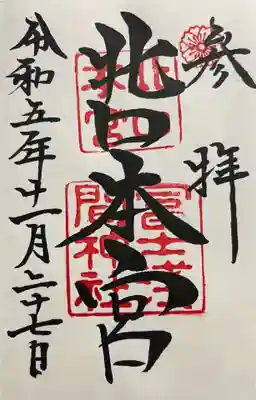 参拝
北口本宮
冨士
間神社
令和五年十一月二十七日